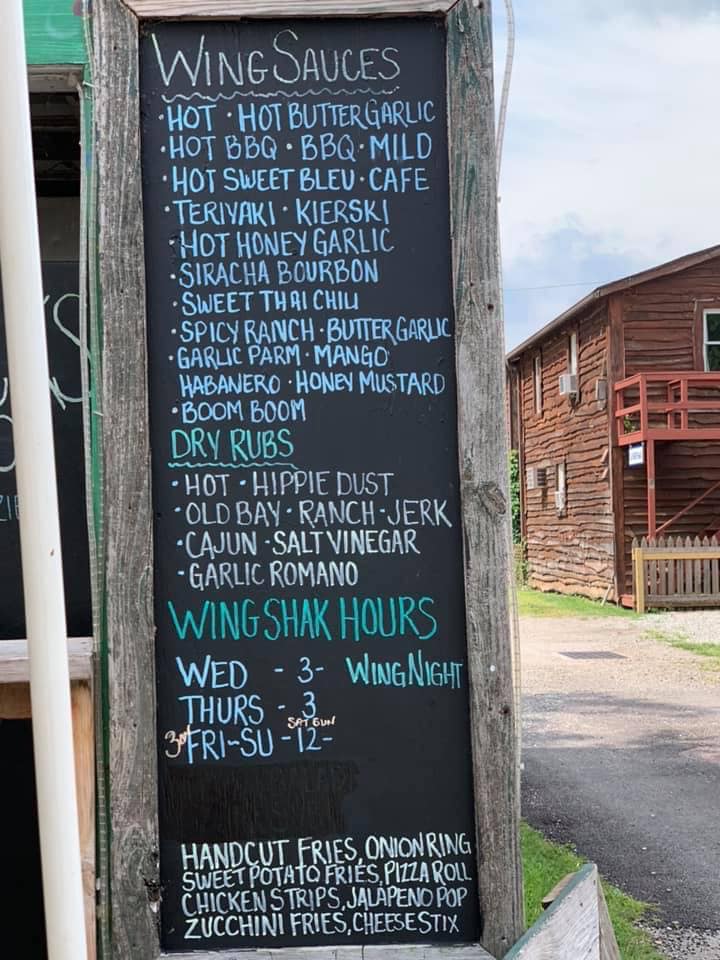 WING SAUCES
· HOT · HOT BUTTER GARLIC
· HOT BBQ · BBQ · MILD
· HOT SWEET BLEU · CAFE
· TERIYAKI · KIERSKI
· HOT HONEY GARLIC
· SIRACHA BOURBON
· SWEET THAI CHILI
· SPICY RANCH · BUTTER GARLIC
· GARLIC PARM · MANGO
HABANERO · HONEY MUSTARD
· BOOM BOOM
DRY RUBS
· HOT · HIPPIE DUST
· OLD BAY · RANCH · JERK
· CAJUN · SALT VINEGAR
· GARLIC ROMANO
WING SHAK HOURS
WED - 3 - WING NIGHT
THURS - 3
SAT SUN
FRI-SU - 12 -
HANDCUT FRIES, ONION RING
SWEET POTATO FRIES, PIZZA ROLL
CHICKEN STRIPS, JALAPENO POP
ZUCCHINI FRIES, CHEESE STIX